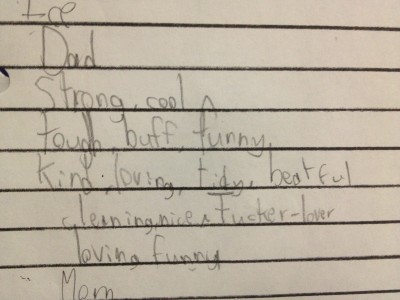 Dad
Strong, cool
tough, buff, funny,
Kind, loving, tidy, beatful
cleaning, nice, fucker-lover
loving, funny
Mom